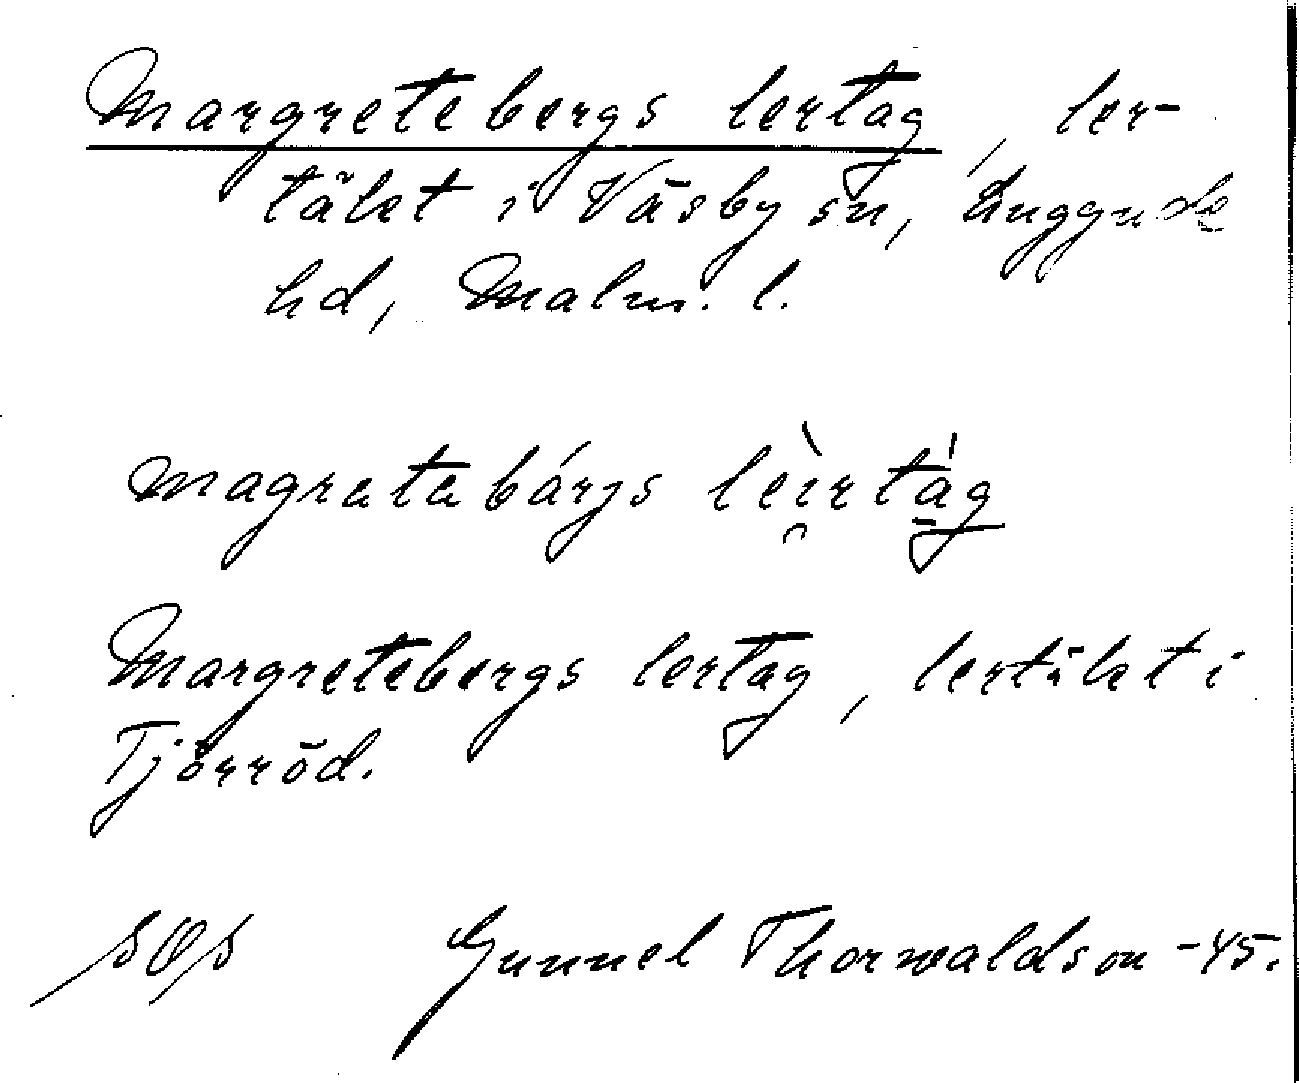 Margretebergs lertag, ler-
täkt i Väsby sn, Luggude
hd, Malm. l.
magratabárjs lèi̯rtág
Margretebergs lertag, lertäkt i
Tjörröd.
Gunnel Thorwaldson -45.